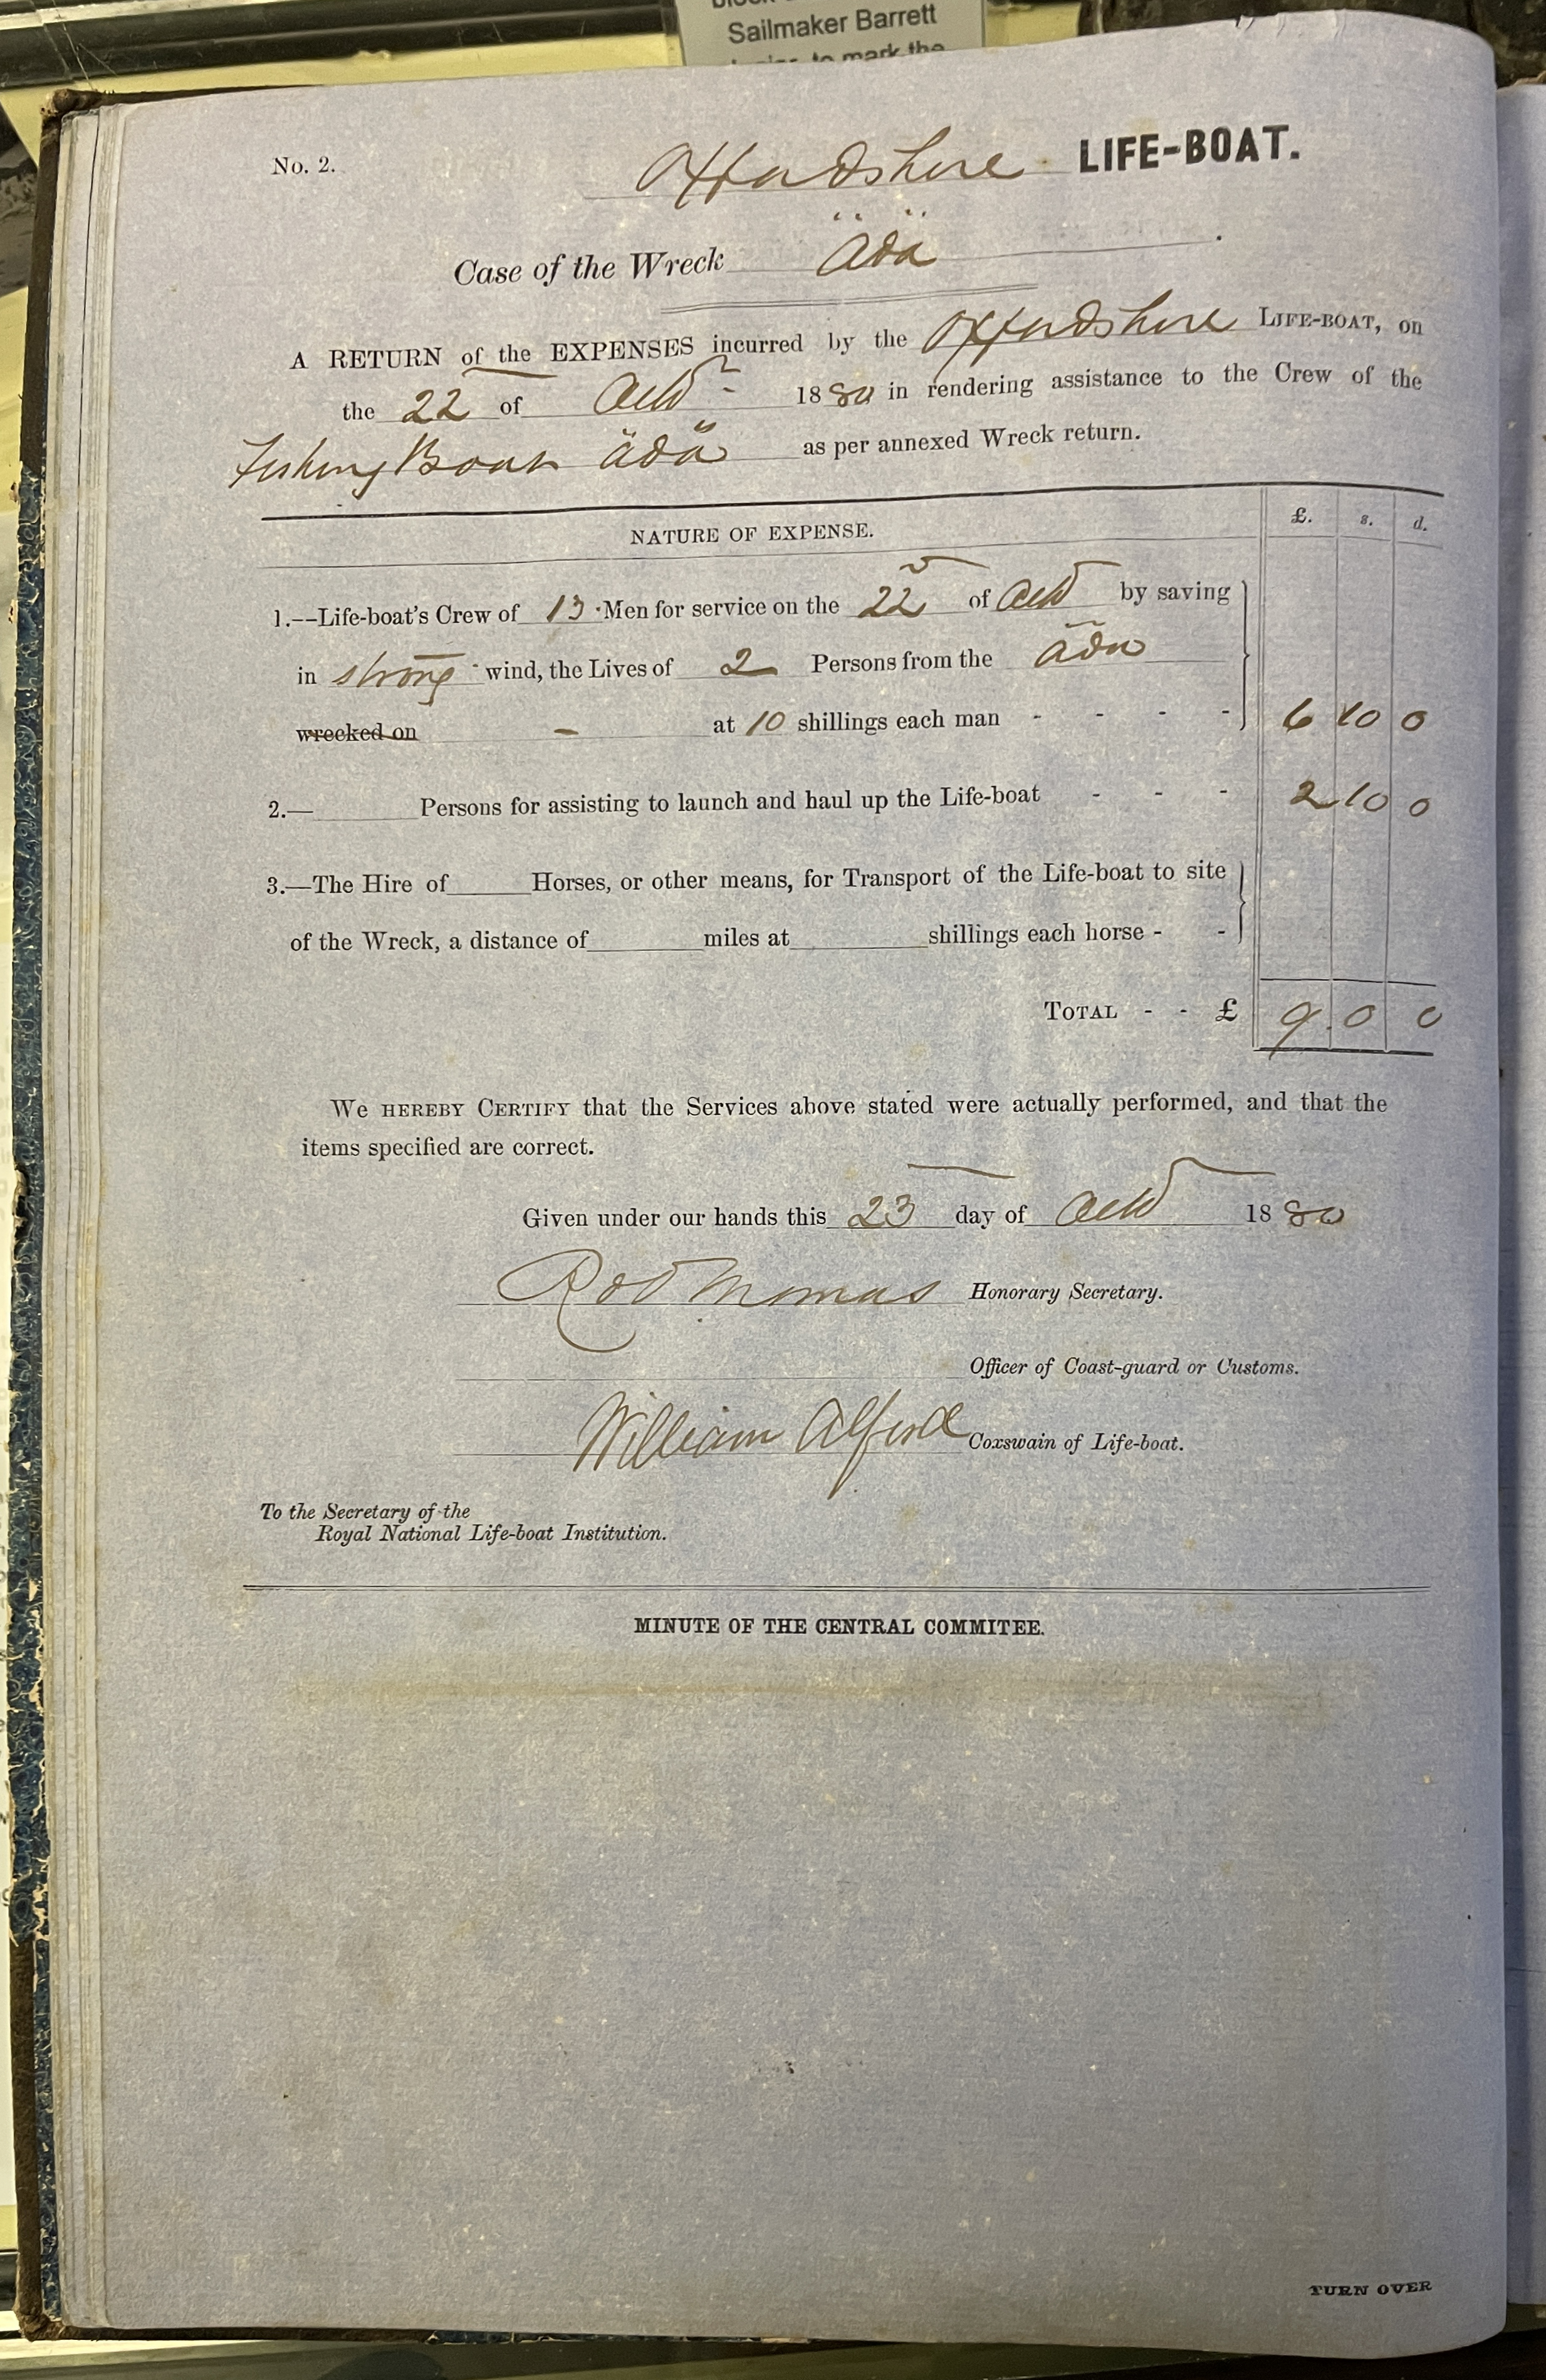 Sailmaker Barrett
No. 2.
Oxfordshire LIFE-BOAT.
Case of the Wreck "Ada"
A RETURN of the EXPENSES incurred by the Oxfordshire LIFE-BOAT, on
the 22 of Octr 1880 in rendering assistance to the Crew of the
Fishing Boat "Ada" as per annexed Wreck return.
NATURE OF EXPENSE. £. s. d.
1.--Life-boat's Crew of 13 Men for service on the 22 of Octr by saving
in strong wind, the Lives of 2 Persons from the "Ada"
wrecked on - at 10 shillings each man - - - - 6 10 0
2.— Persons for assisting to launch and haul up the Life-boat - - - 2 10 0
3.—The Hire of Horses, or other means, for Transport of the Life-boat to site
of the Wreck, a distance of miles at shillings each horse - -
TOTAL - - £ 9 0 0
We HEREBY CERTIFY that the Services above stated were actually performed, and that the
items specified are correct.
Given under our hands this 23 day of Octr 1880
Robt Thomas Honorary Secretary.
Officer of Coast-guard or Customs.
William Alford Coxswain of Life-boat.
To the Secretary of the
Royal National Life-boat Institution.
MINUTE OF THE CENTRAL COMMITEE.
TURN OVER